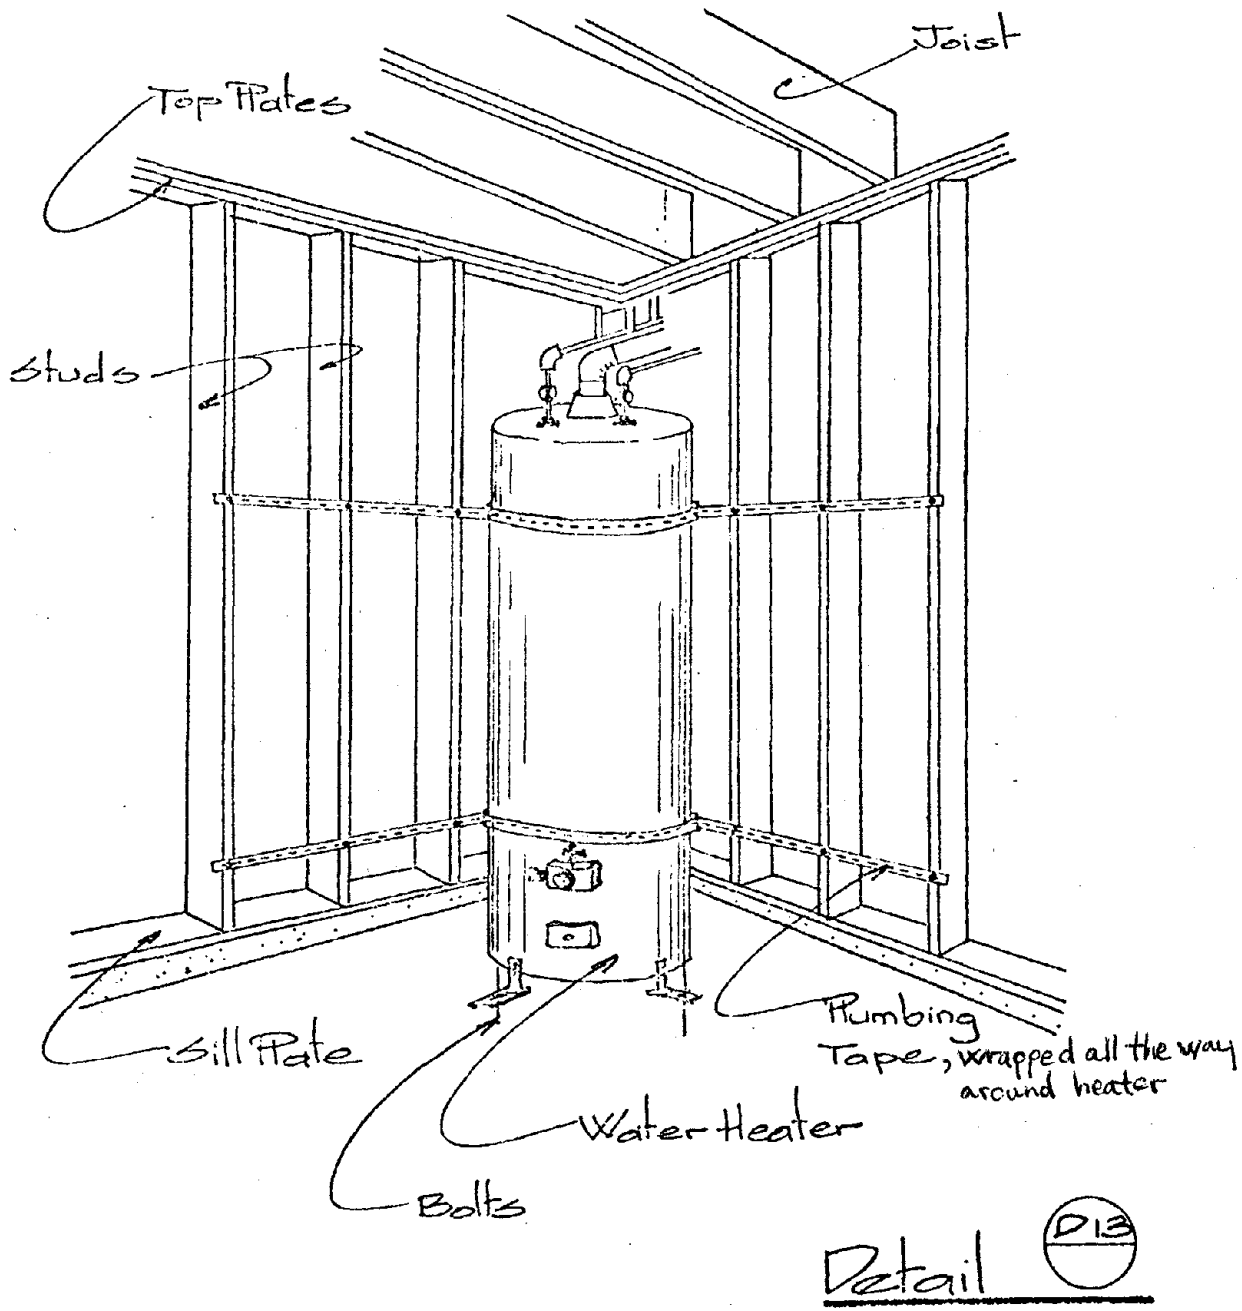 Joist
Top Plates
Studs
Sill Plate
Plumbing
Tape, wrapped all the way
around heater
Water Heater
Bolts
Detail D13